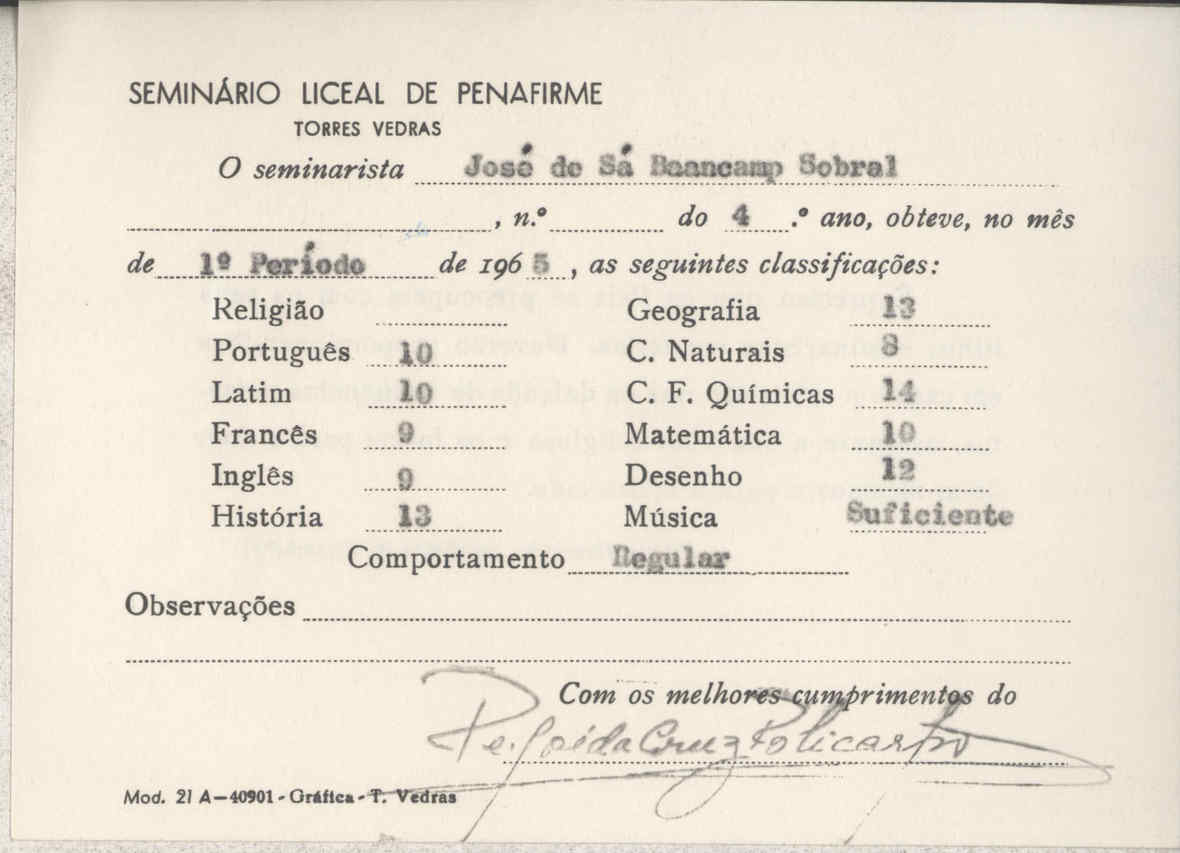 SEMINÁRIO LICEAL DE PENAFIRME
TORRES VEDRAS
O seminarista José de Sá Baancamp Sobral
, n.º do 4 .º ano, obteve, no mês
de 1º Período de 1965, as seguintes classificações:
Religião Geografia 13
Português 10 C. Naturais 8
Latim 10 C. F. Químicas 14
Francês 9 Matemática 10
Inglês 9 Desenho 12
História 13 Música Suficiente
Comportamento Regular
Observações
Com os melhores cumprimentos do
Pe. José da Cruz Policarpo
Mod. 21 A-40901-Gráfica-T. Vedras